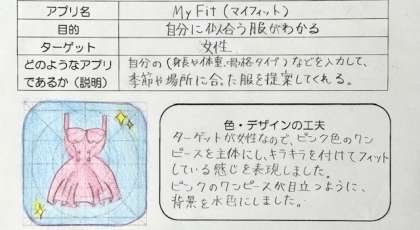 アプリ名 My Fit (マイフィット)
目的 自分に似合う服がわかる
ターゲット 女性
どのようなアプリ 自分の(身長や体重、骨格タイプ)などを入力して、
であるか(説明) 季節や場所に合った服を提案してくれる。
色・デザインの工夫
ターゲットが女性なので、ピンク色のワン
ピースを主体にし、キラキラを付けてフィット
している感じを表現しました。
ピンクのワンピースが目立つように、
背景を水色にしました。